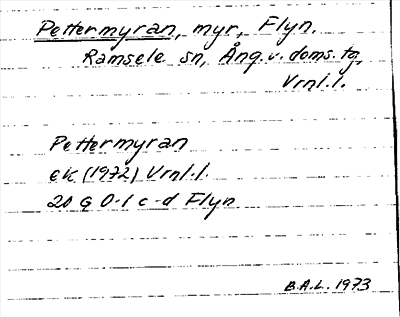 Pettermyran, myr, Flyn.
Ramsele sn, Ång.v. doms. tg,
Vrnl.l.
Pettermyran
ek (1972) Vrnl.l.
20 G 0-1 c-d Flyn
B.A.L. 1973